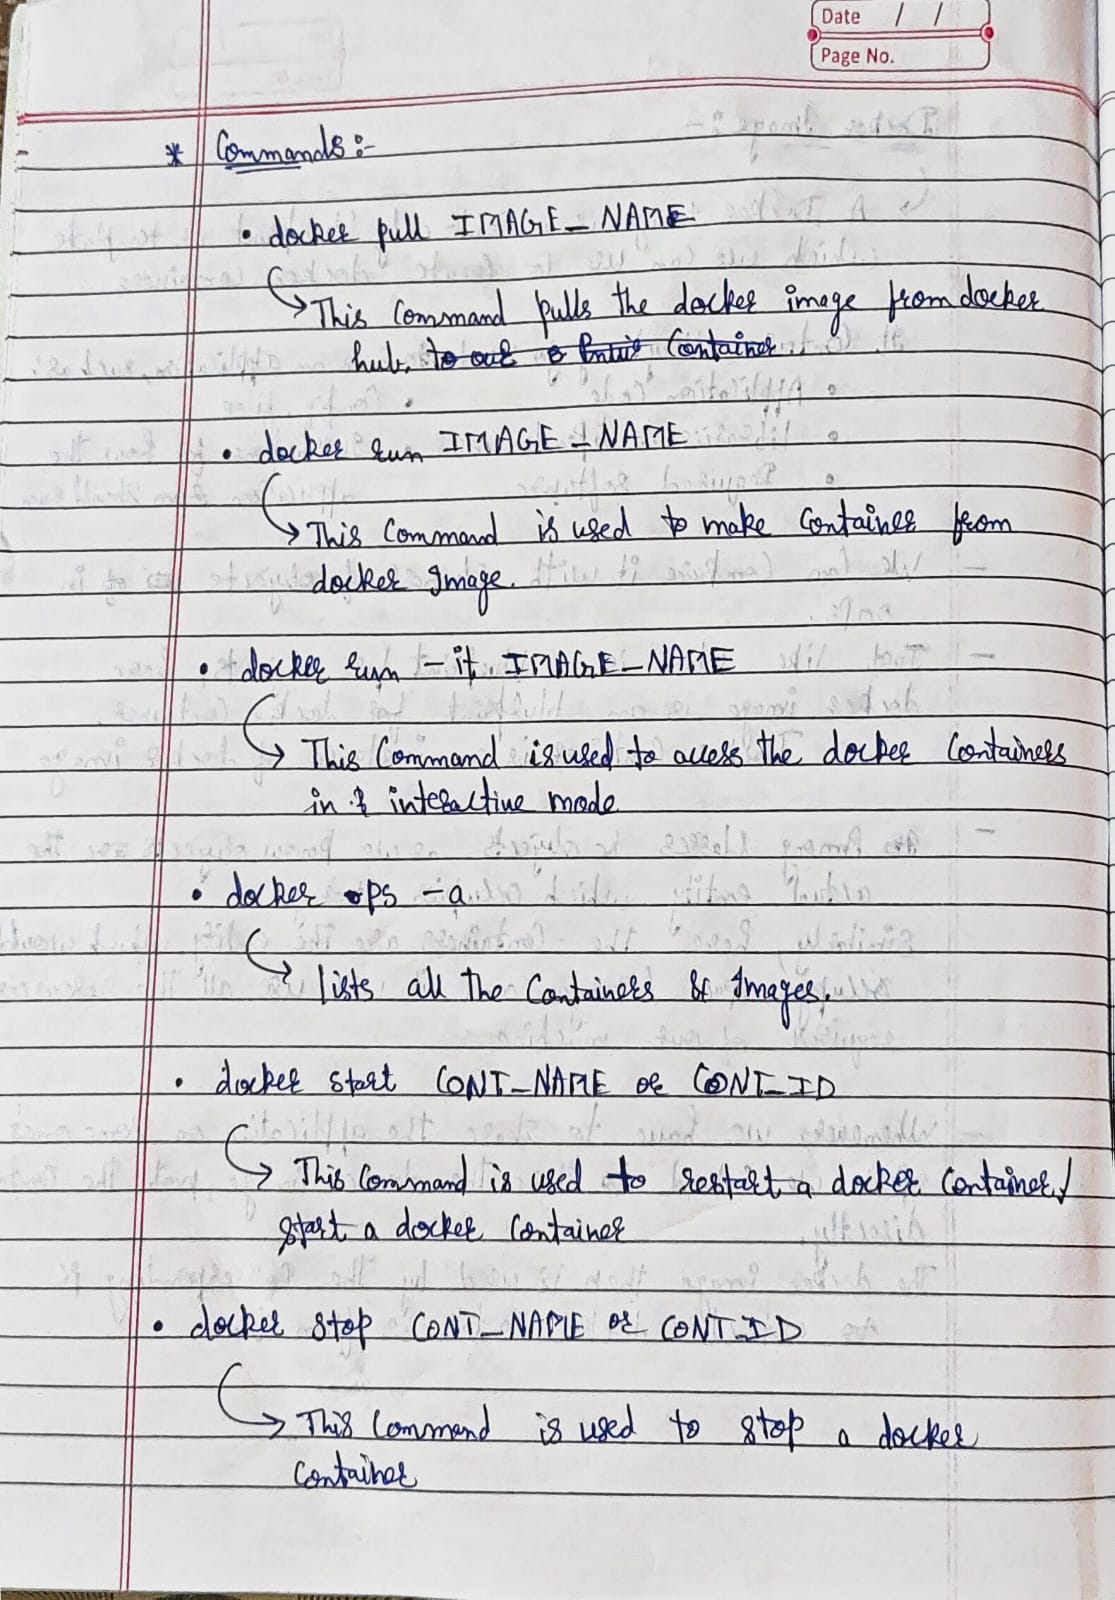 Date / /
Page No.
* Commands :-
• docker pull IMAGE_NAME
This Command pulls the docker image from docker
hub. to our Container.
• docker run IMAGE_NAME
This Command is used to make Container from
docker Image.
• docker run -it IMAGE_NAME
This Command is used to access the docker Containers
in interactive mode
• docker ps -a
lists all the Containers & Images.
• docker start CONT_NAME or CONT_ID
This Command is used to restart a docker Container/
start a docker Container
• docker stop CONT_NAME or CONT_ID
This Command is used to stop a docker
Container